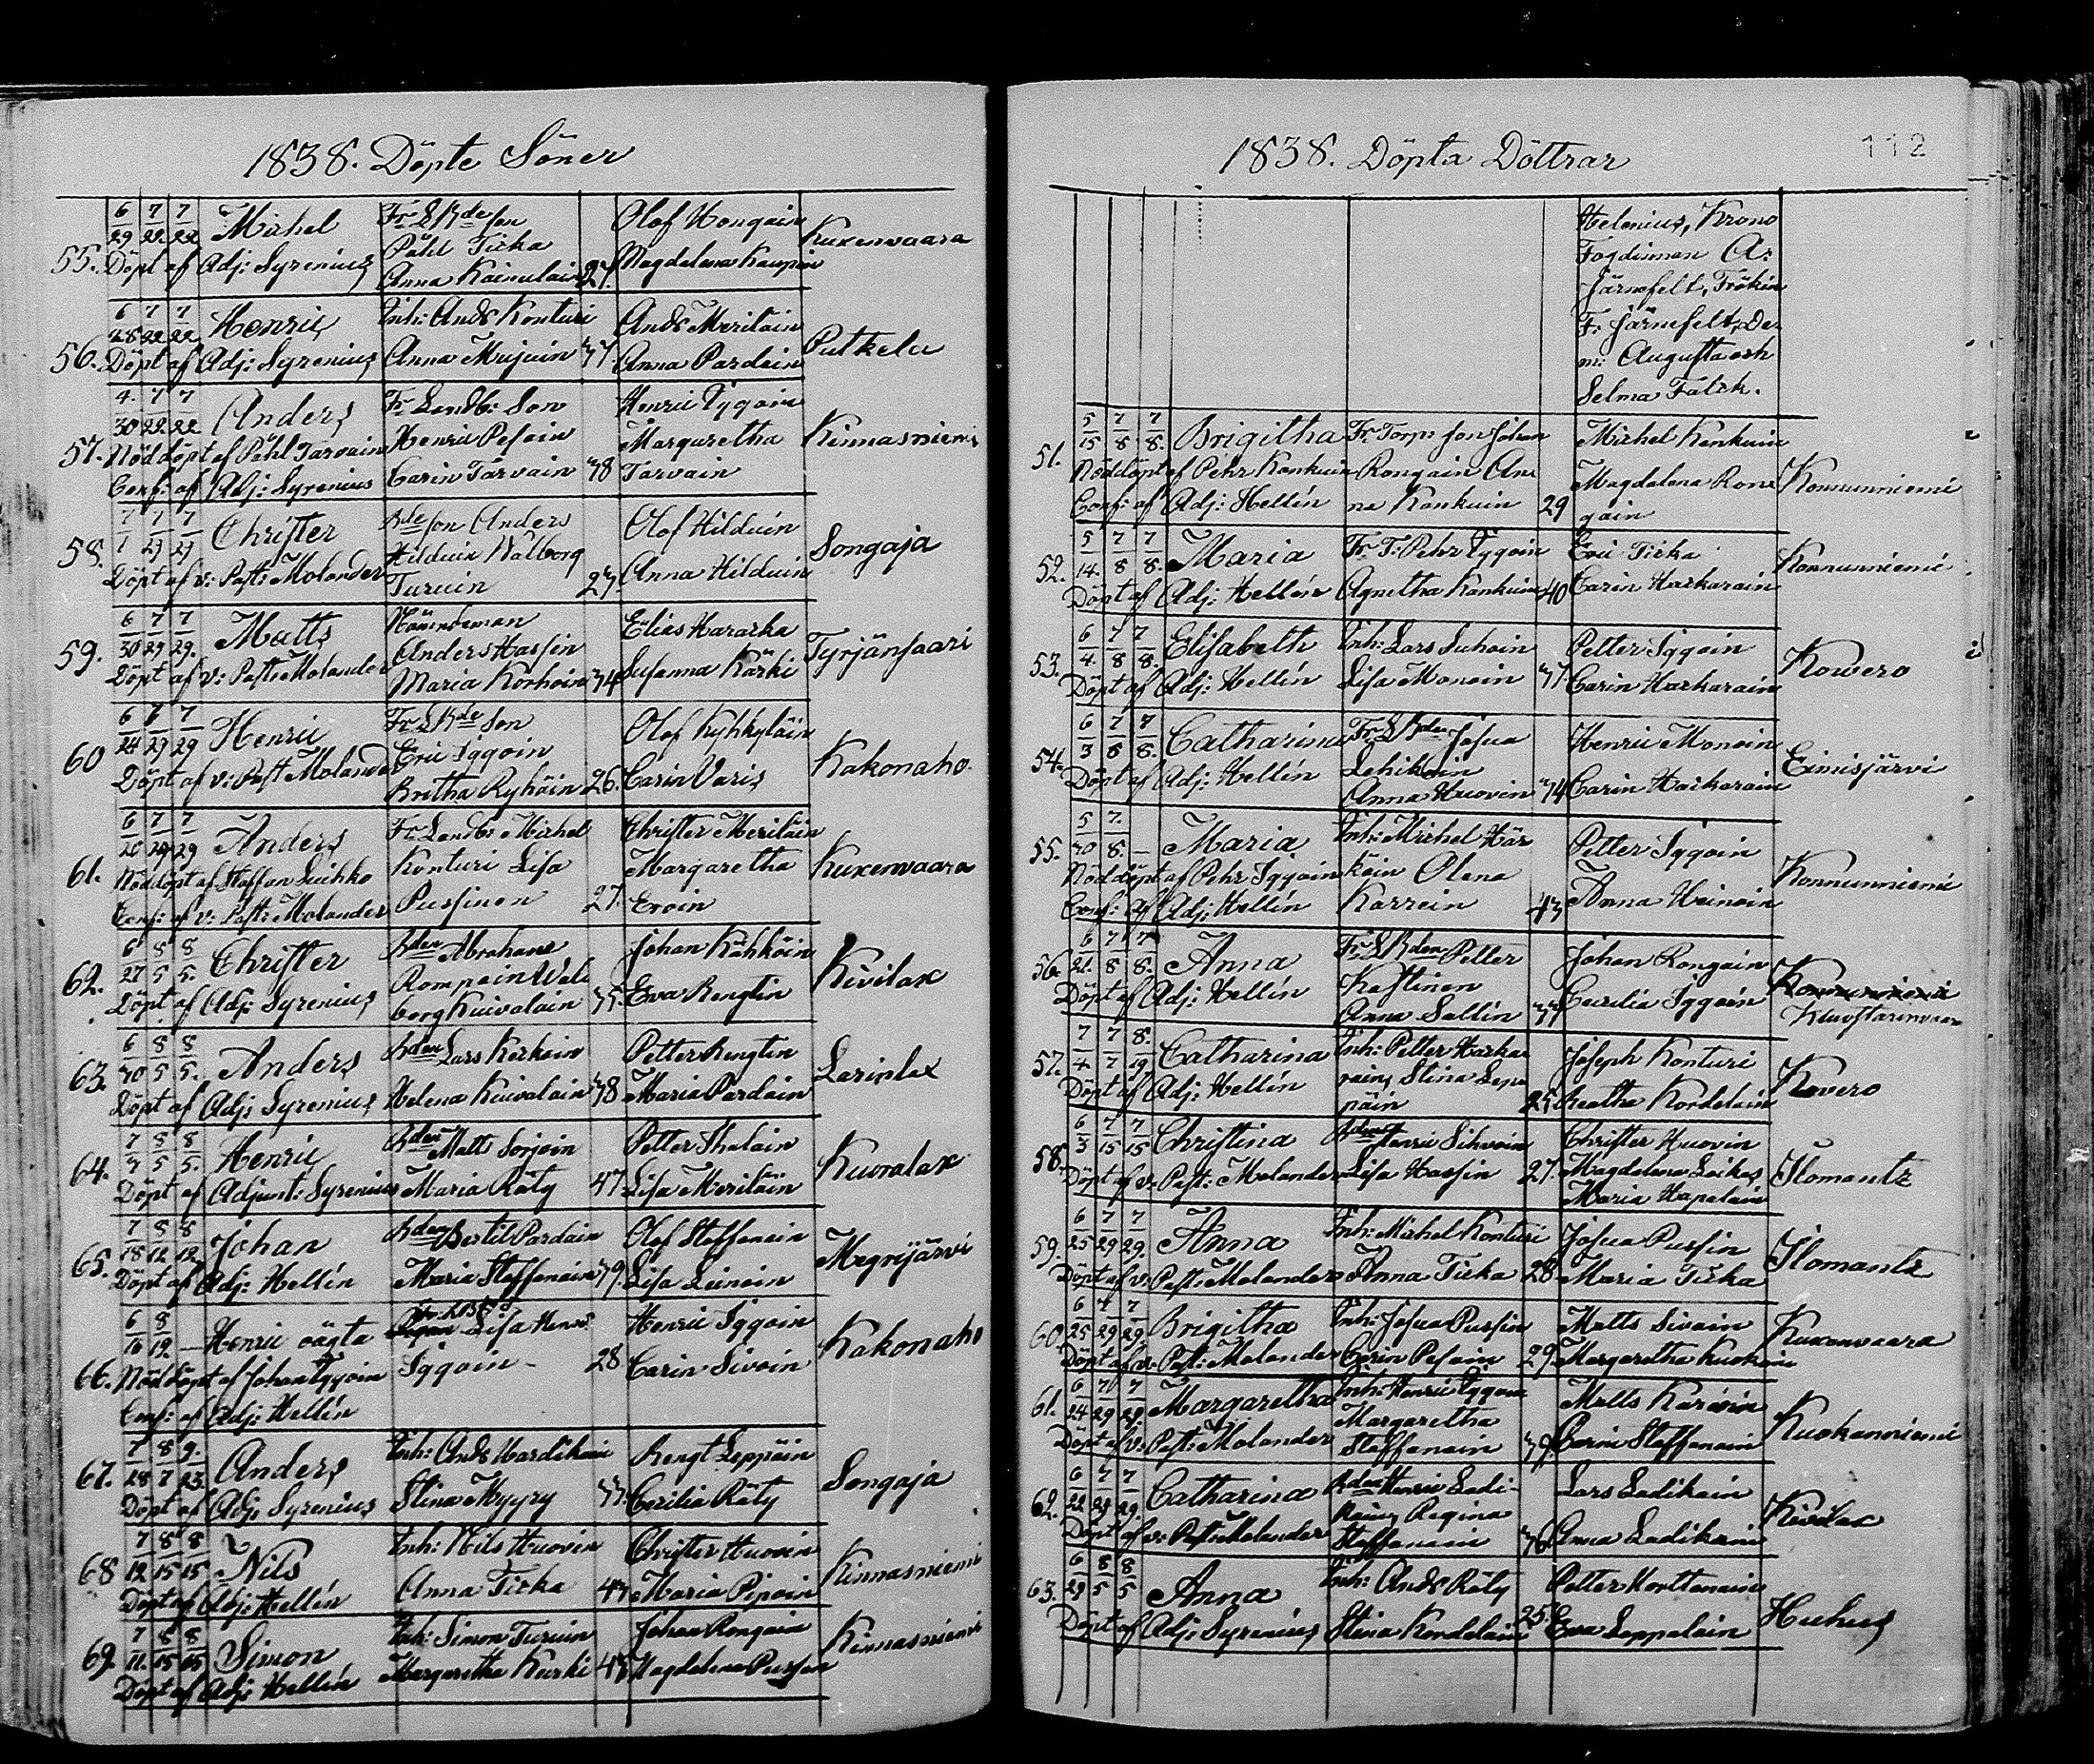 1838. Döpte Söner
55. 6/29 7/22 7/22 Michel
Döpt af Adj: Syrenius
Påhl Ticka
Anna Kainulain 27.
Olof Hongain
Magdalena Kaupin
Kuxenvaara
56. 6/28 7/22 7/22 Henric
Döpt af Adj: Syrenius
Inh: Ands Konturi
Anna Mujuin
Ands Meriläin
Anna Pardain
Putkela
57. 4/30 7/22 7/22 Anders
Nöddöpt af Påhl Tarvain
Conf: af Adj: Syrenius
Fr Landb: Son
Henric Pesoin
Carin Tarvain 38
Henric Iggoin
Margaretha
Tarvain
Kinnasniemi
58. 7/1 7/29 7/29 Christer
Döpt af v: Past: Molander
Bdeson Anders
Hilduin Wålborg
Turuin 27.
Olof Hilduin
Anna Hilduin
Songaja
59. 6/30 7/29 7/29. Matts
Döpt af v: Past: Molander
Nämndeman
Anders Hassin
Maria Korhoin 34
Elias Hararka
Susanna Kärki
Tyrjänsaari
60 6/24 7/29 7/29 Henric
Döpt af v: Past Molander
Fr LBde Son
Eric Iggoin
Britha Ryhäin 26.
Olof Kyhkyläin
Carin Varis
Kakonaho.
61. 6/20 7/29 7/29 Anders
Nöddöpt af Staffan Luihko
Conf: af v: Past: Molander
Fr Landb: Michel
Konturi Lisa
Pussinen 27.
Christer Meriläin
Margaretha
Eroin
Kuxenvaara
62. 6/27 8/5 8/5. Christer
Döpt af Adj: Syrenius
Bden Abraham
Rompain Wal
borg Kuivalain 35.
Johan Kähköin
Eva Rengtin
Kivilax
63. 6/30 8/5 8/5. Anders
Döpt af Adj: Syrenius
Bden Lars Kerkäin
Helena Kuivalain 38
Petter Rengtin
Maria Pardain
Larinlax
64. 7/3 8/5 8/5. Henric
Döpt af Adjunct: Syrenius
Bden Matts Sorjoin
Maria Räty 47.
Petter Ihalain
Lisa Meriläin
Kuoralax
65. 7/18 8/12 8/12. Johan
Döpt af Adj: Hellén
Bden Bertil Pardain
Maria Staffanain 39.
Olof Staffanain
Lisa Leinoin
Megrijärvi
66. 6/16 8/12 — Henric oägta
Nöddöpt af Johan Iggoin
Conf: af Adj: Hellén
Lisa Henrs
Iggoin - 28
Henric Iggoin
Carin Sivoin
Kakonaho
67. 7/28 8/7 9./23. Anders
Döpt af Adj: Syrenius
Inh: Ands Mardikain
Stina Myyry 33.
Bengt Leppäin
Cecilia Räty
Songaja
68 7/12 8/15 8/15 Nils
Döpt af Adj: Hellén
Inh: Nils Huovin
Anna Ticka 43
Christer Huovin
Maria Pipoin
Kinnasniemi
69. 7/11. 8/15 8/15 Simon
Döpt af Adj: Hellén
Inh: Simon Turuin
Margaretha Kurki 43
Johan Rongain
Magdalena Pussin
Kinnasniemi
1838. Döpta Döttrar
112
Helenius, Krono
Fogdinnan A:
Järnefelt, Fröken
F. Järnefelt, De
m: Augusta och
Selma Falck.
51. 5/15 7/8 7/8. Brigitha
Nöddöpt af Pehr Kankuin
Conf: af Adj: Hellén
Fr. Torp: son Johan
Rongain An
na Kankuin 29
Michel Kankuin
Magdalena Ron
gain
Konnunniemi
52. 5/14. 7/8 7/8. Maria
Döpt af Adj: Hellén
Fr. T: Pehr Iggoin
Agnetha Kankuin 40
Eric Ticka
Carin Harkarain
Konnunniemi
53. 6/4. 7/8 7/8. Elisabeth
Döpt af Adj: Hellén
Inh: Lars Suhoin
Lisa Monoin
Petter Iggoin
Carin Harkarain
Kowero
54. 6/3 7/8 7/8. Catharina
Döpt af Adj: Hellén
Fr. LBden Josua
Lehikoin
Anna Huovin 34
Henric Monoin
Carin Harkarain
Eimisjärvi
55. 5/30 7./8. — Maria
Nöddöpt af Pehr Iggoin
Conf: af Adj: Hellén
Inh: Michel Här
käin Olena
Karrein 43
Petter Iggoin
Anna Heinoin
Konnunniemi
56. 6/21. 7/8 7/8. Anna
Döpt af Adj: Hellén
Fr. LBden Petter
Kastinen
Anna Sallin
Johan Rongain
Cecilia Iggoin
Konnunniemi
57. 7/4 7/7 8./19. Catharina
Döpt af Adj: Hellén
Inh: Petter Harka
rain, Stina Lep
päin 25.
Joseph Konturi
Beatha Kordelain
Kovero
58. 6/3 7/15 7/15 Christina
Döpt af v: Past: Molander
Bden Henric Sihvoin
Lisa Hassin 27.
Christer Huovin
Magdalena Loikas
Maria Hapalain
Ilomantz
59. 6/25 7/29 7/29. Anna
Döpt af v: Past: Molander
Inh: Michel Konturi
Anna Ticka 28
Josua Pussin
Maria Ticka
Ilomantz
60. 6/25 7/29 7/29. Brigitha
Döpt af v: Past: Molander
Inh: Josua Pussin
Carin Pesoin 29.
Matts Sivoin
Margaretha Kuokain
Kuxenvaara
61. 6/24 7/29 7/29. Margaretha
Döpt af v: Past: Molander
Inh: Henric Iggoin
Margaretha
Staffanain 39.
Matts Karvoin
Carin Staffanain
Kuokanniemi
62. 6/22 7/29 7/29. Catharina
Döpt af v: Past: Molander
Bden Henric Ladi-
kain, Regina
Staffanain 36.
Lars Ladikain
Anna Ladikain
Kivilax
63. 6/29 8/5 8/5 Anna
Döpt af Adj: Syrenius
Inh: Ands Räty
Stina Kordelain 25.
Petter Korttenain
Eva Leppalain
Huhus